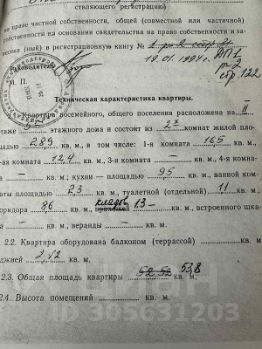 ствляющего регистрацию)
на праве частной собственности, общей (совместной или частичной)
собственности на основании свидетельства на право собственности и за-
(ный) в регистрационную книгу №
18.01.1994г.
стр 122
Руководитель
М. П.
Техническая характеристика квартиры.
Квартира посемейного, общего поселения расположена на II
этаже этажного дома и состоит из 2х комнат жилой пло-
щадью 28,9 кв. м, в том числе: 1-я комната 16,5 кв. м,
2-я комната 12,4 кв. м, 3-я комната — кв. м, 4-я комна-
та — кв. м; кухни — площадью 9,5 кв. м, ванной ком-
наты площадью 2,3 кв. м, туалетной (отдельной) 1,1 кв. м,
коридора 8,6 кв. м, кладов 1,3 кв. м, встроенного шка-
кв. м, веранды кв. м.
2.2. Квартира оборудована балконом (террассой) кв. м,
лоджией 2,12 кв. м.
2.3. Общая площадь квартиры 53,8 кв. м.
2.4. Высота помещений кв. м.